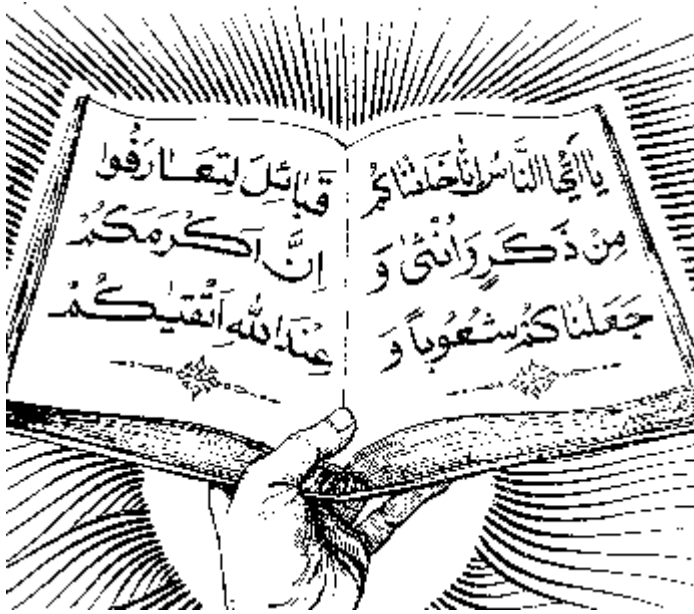 يَا اَيُّهَا النَّاسُ اِنَّا خَلَقْنَاكُمْ
مِنْ ذَكَرٍ وَاُنْثىٰ وَ
جَعَلْنَاكُمْ شُعُوباً وَ
قَبَائِلَ لِتَعَارَفُوا
اِنَّ اَكْرَمَكُمْ
عِنْدَاللهِ اَتْقيٰكُمْ